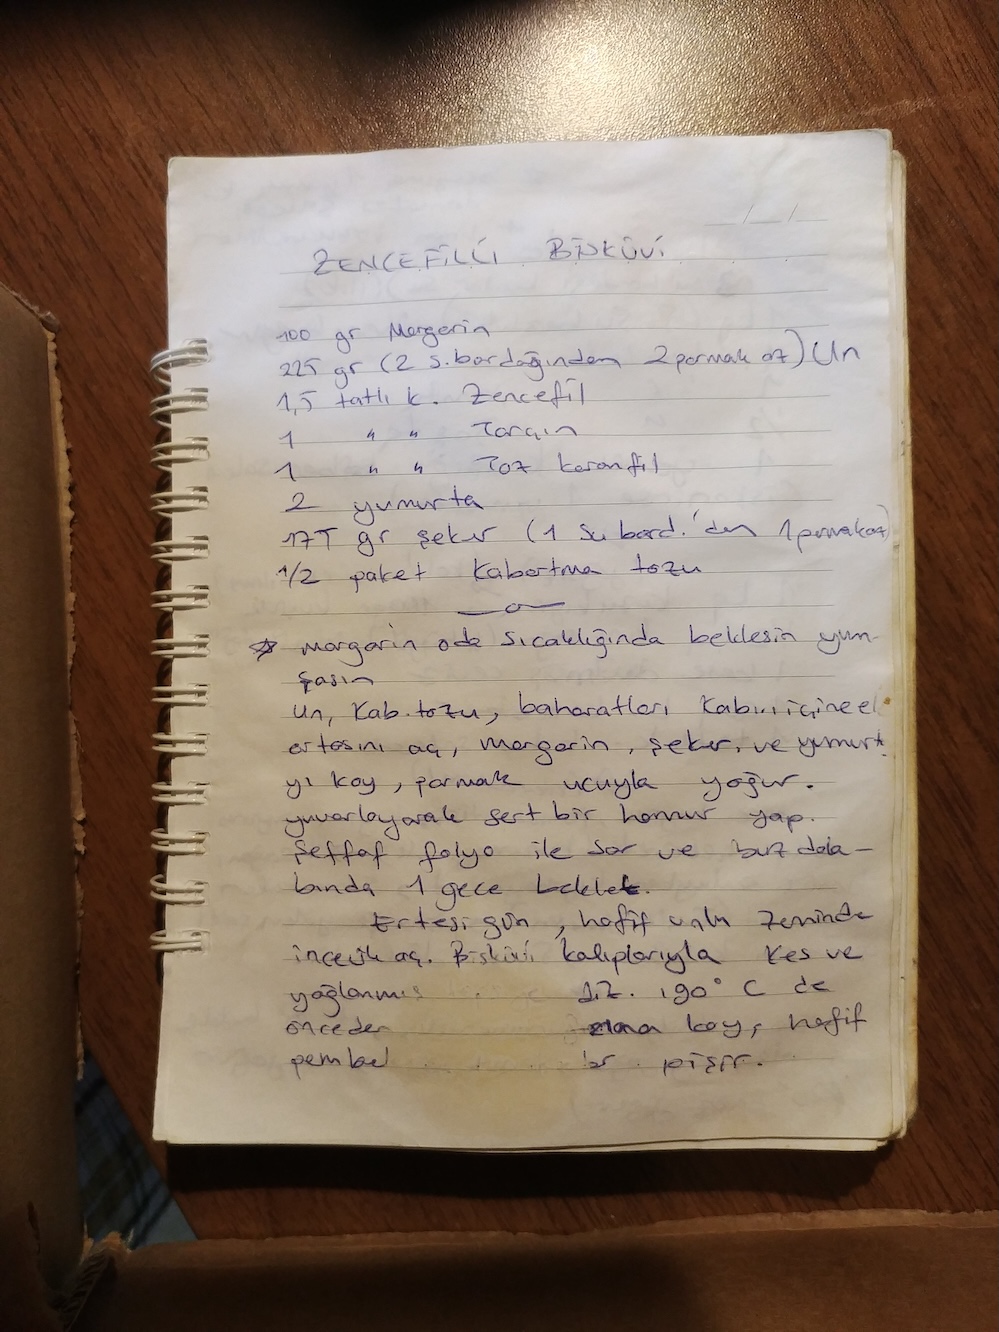 ZENCEFİLLİ BİSKÜVİ
100 gr Margarin
225 gr (2 s.bardağından 2 parmak az) Un
1,5 tatlı k. Zencefil
1 " " Tarçın
1 " " Toz karanfil
2 yumurta
175 gr şeker (1 su bard.'dan 1 parmak az)
1/2 paket Kabartma tozu
* Margarin oda sıcaklığında beklesin yum-
şasın
Un, Kab. tozu, baharatları içine el
ortasını aç, margarin, şeker, ve yumurta
yı koy, parmak ucuyla yoğur.
yuvarlayarak sert bir hamur yap.
Şeffaf folyo ile sar ve buzdola-
bında 1 gece beklet.
Ertesi gün, hafif unlu zeminde
incecik aç. Bisküvi kalıplarıyla kes ve
yağlanmış diz. 190° C de
önceden koy, hafif
pembe pişir.